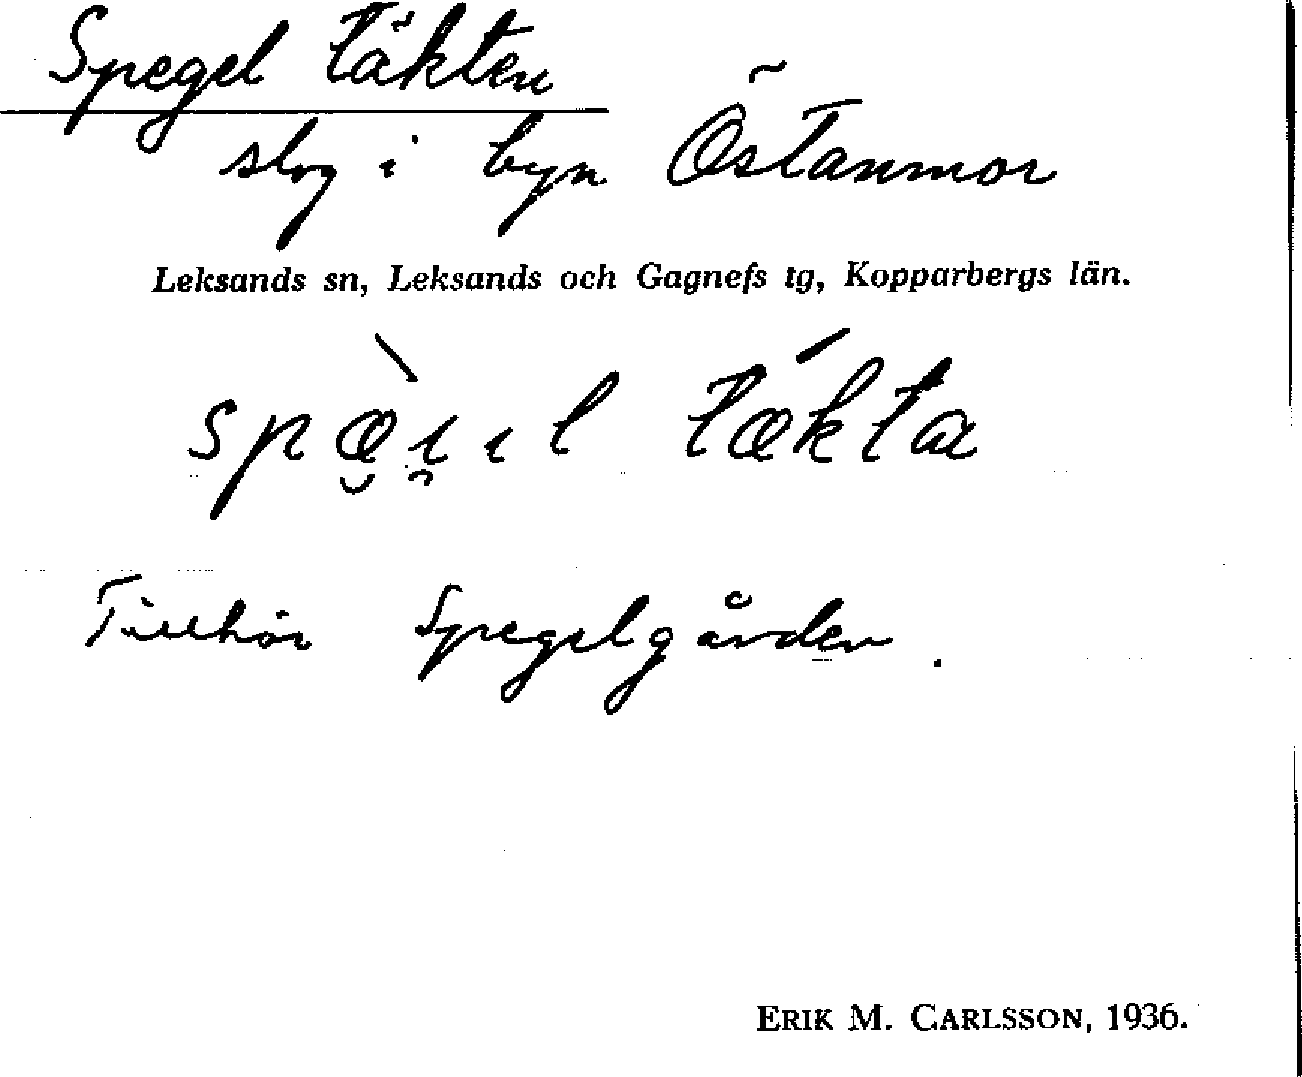 Spegel täkten
slog i byn Östanmor
Leksands sn, Leksands och Gagnefs tg, Kopparbergs län.
spæ̀ı̯ıl tǽkta
Tillhör Spegelgården.
ERIK M. CARLSSON, 1936.